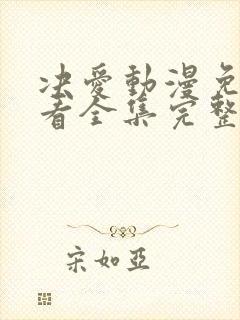 决爱動漫免
看全集完整
宋如亞